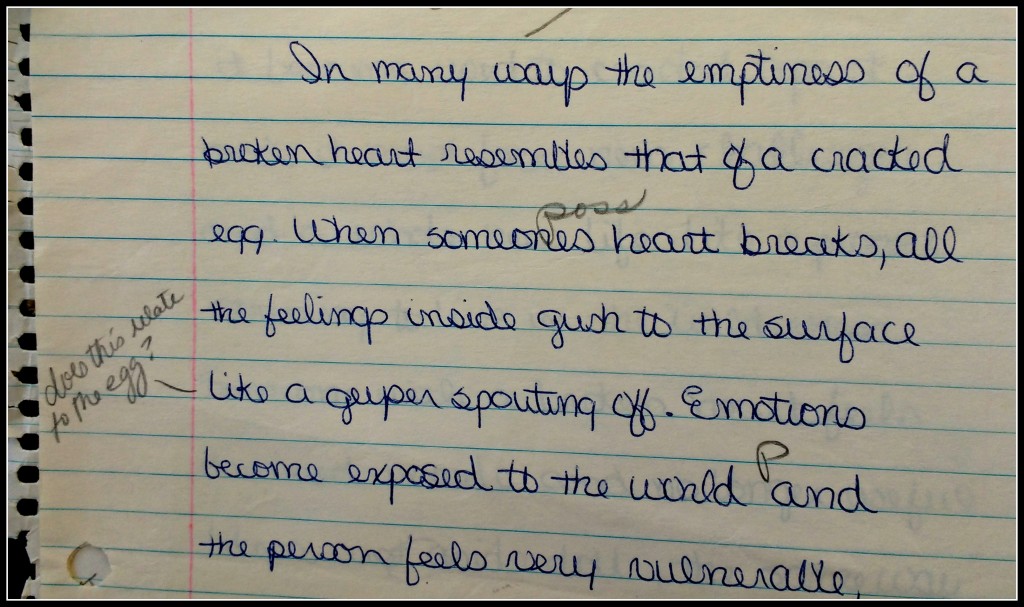 In many ways the emptiness of a
broken heart resembles that of a cracked
poss
egg. When someones heart breaks, all
the feelings inside gush to the surface
does this relate
to the egg?
like a geyser spouting off. Emotions
P
become exposed to the world and
the person feels very vulnerable,